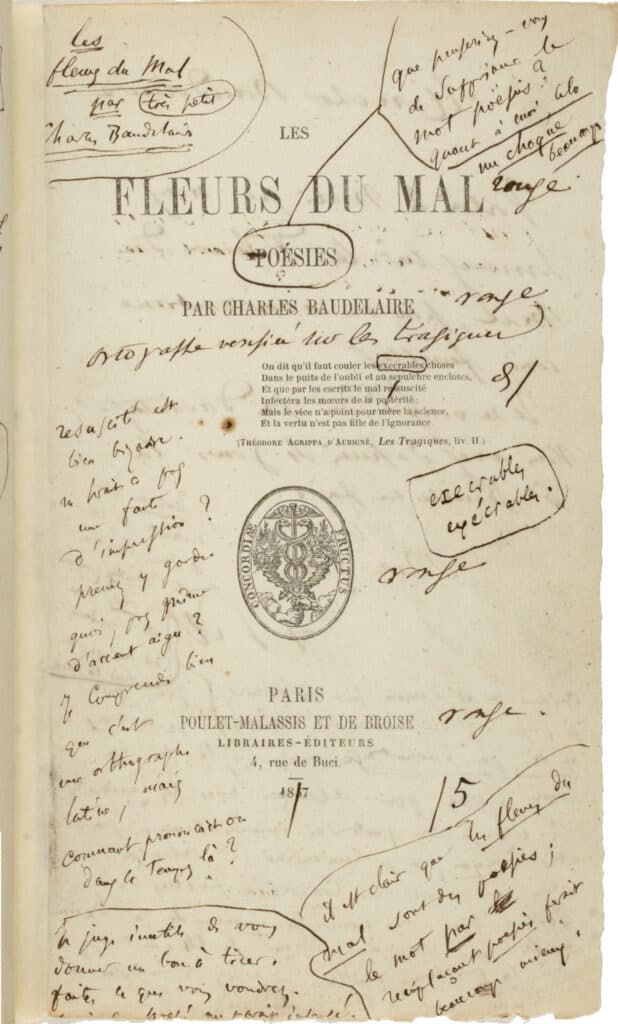 les
fleurs du Mal
par très petit
Charles Baudelaire
que penseriez-vous
de supprimer le
mot poésies?
quant à moi cela
me choque
beaucoup
LES
FLEURS DU MAL
rouge.
POÉSIES
PAR CHARLES BAUDELAIRE
rouge
ortografe vérifié sur les tragiques
On dit qu'il faut couler les execrables choses
Dans le puits de l'oubli et au sepulchre encloses,
Et que par les escrits le mal resuscité
Infectera les mœurs de la postérité;
Mais le vice n'a point pour mère la science,
Et la vertu n'est pas fille de l'ignorance
(THÉODORE AGRIPPA D'AUBIGNÉ, Les Tragiques, liv. II)
resuscité est
bien bizarre.
pas
une faute
d'impression?
prenez y garde.
quoi, pas même
d'accent aigu?
Je comprends bien
que c'est
une orthographe
latine, mais
comment prononçait-on
dans ce temps là?
execrables
exécrables.
CONCORDIÆ FRUCTUS
rouge
PARIS
POULET-MALASSIS ET DE BROISE
rouge.
LIBRAIRES-ÉDITEURS
4, rue de Buci.
1857
/5
il est clair que les fleurs du
mal sont des poésies;
le mot par
remplaçant poésies ferait
beaucoup mieux.
Je juge inutile de vous
donner un bon à tirer.
faites ce que vous voudrez.